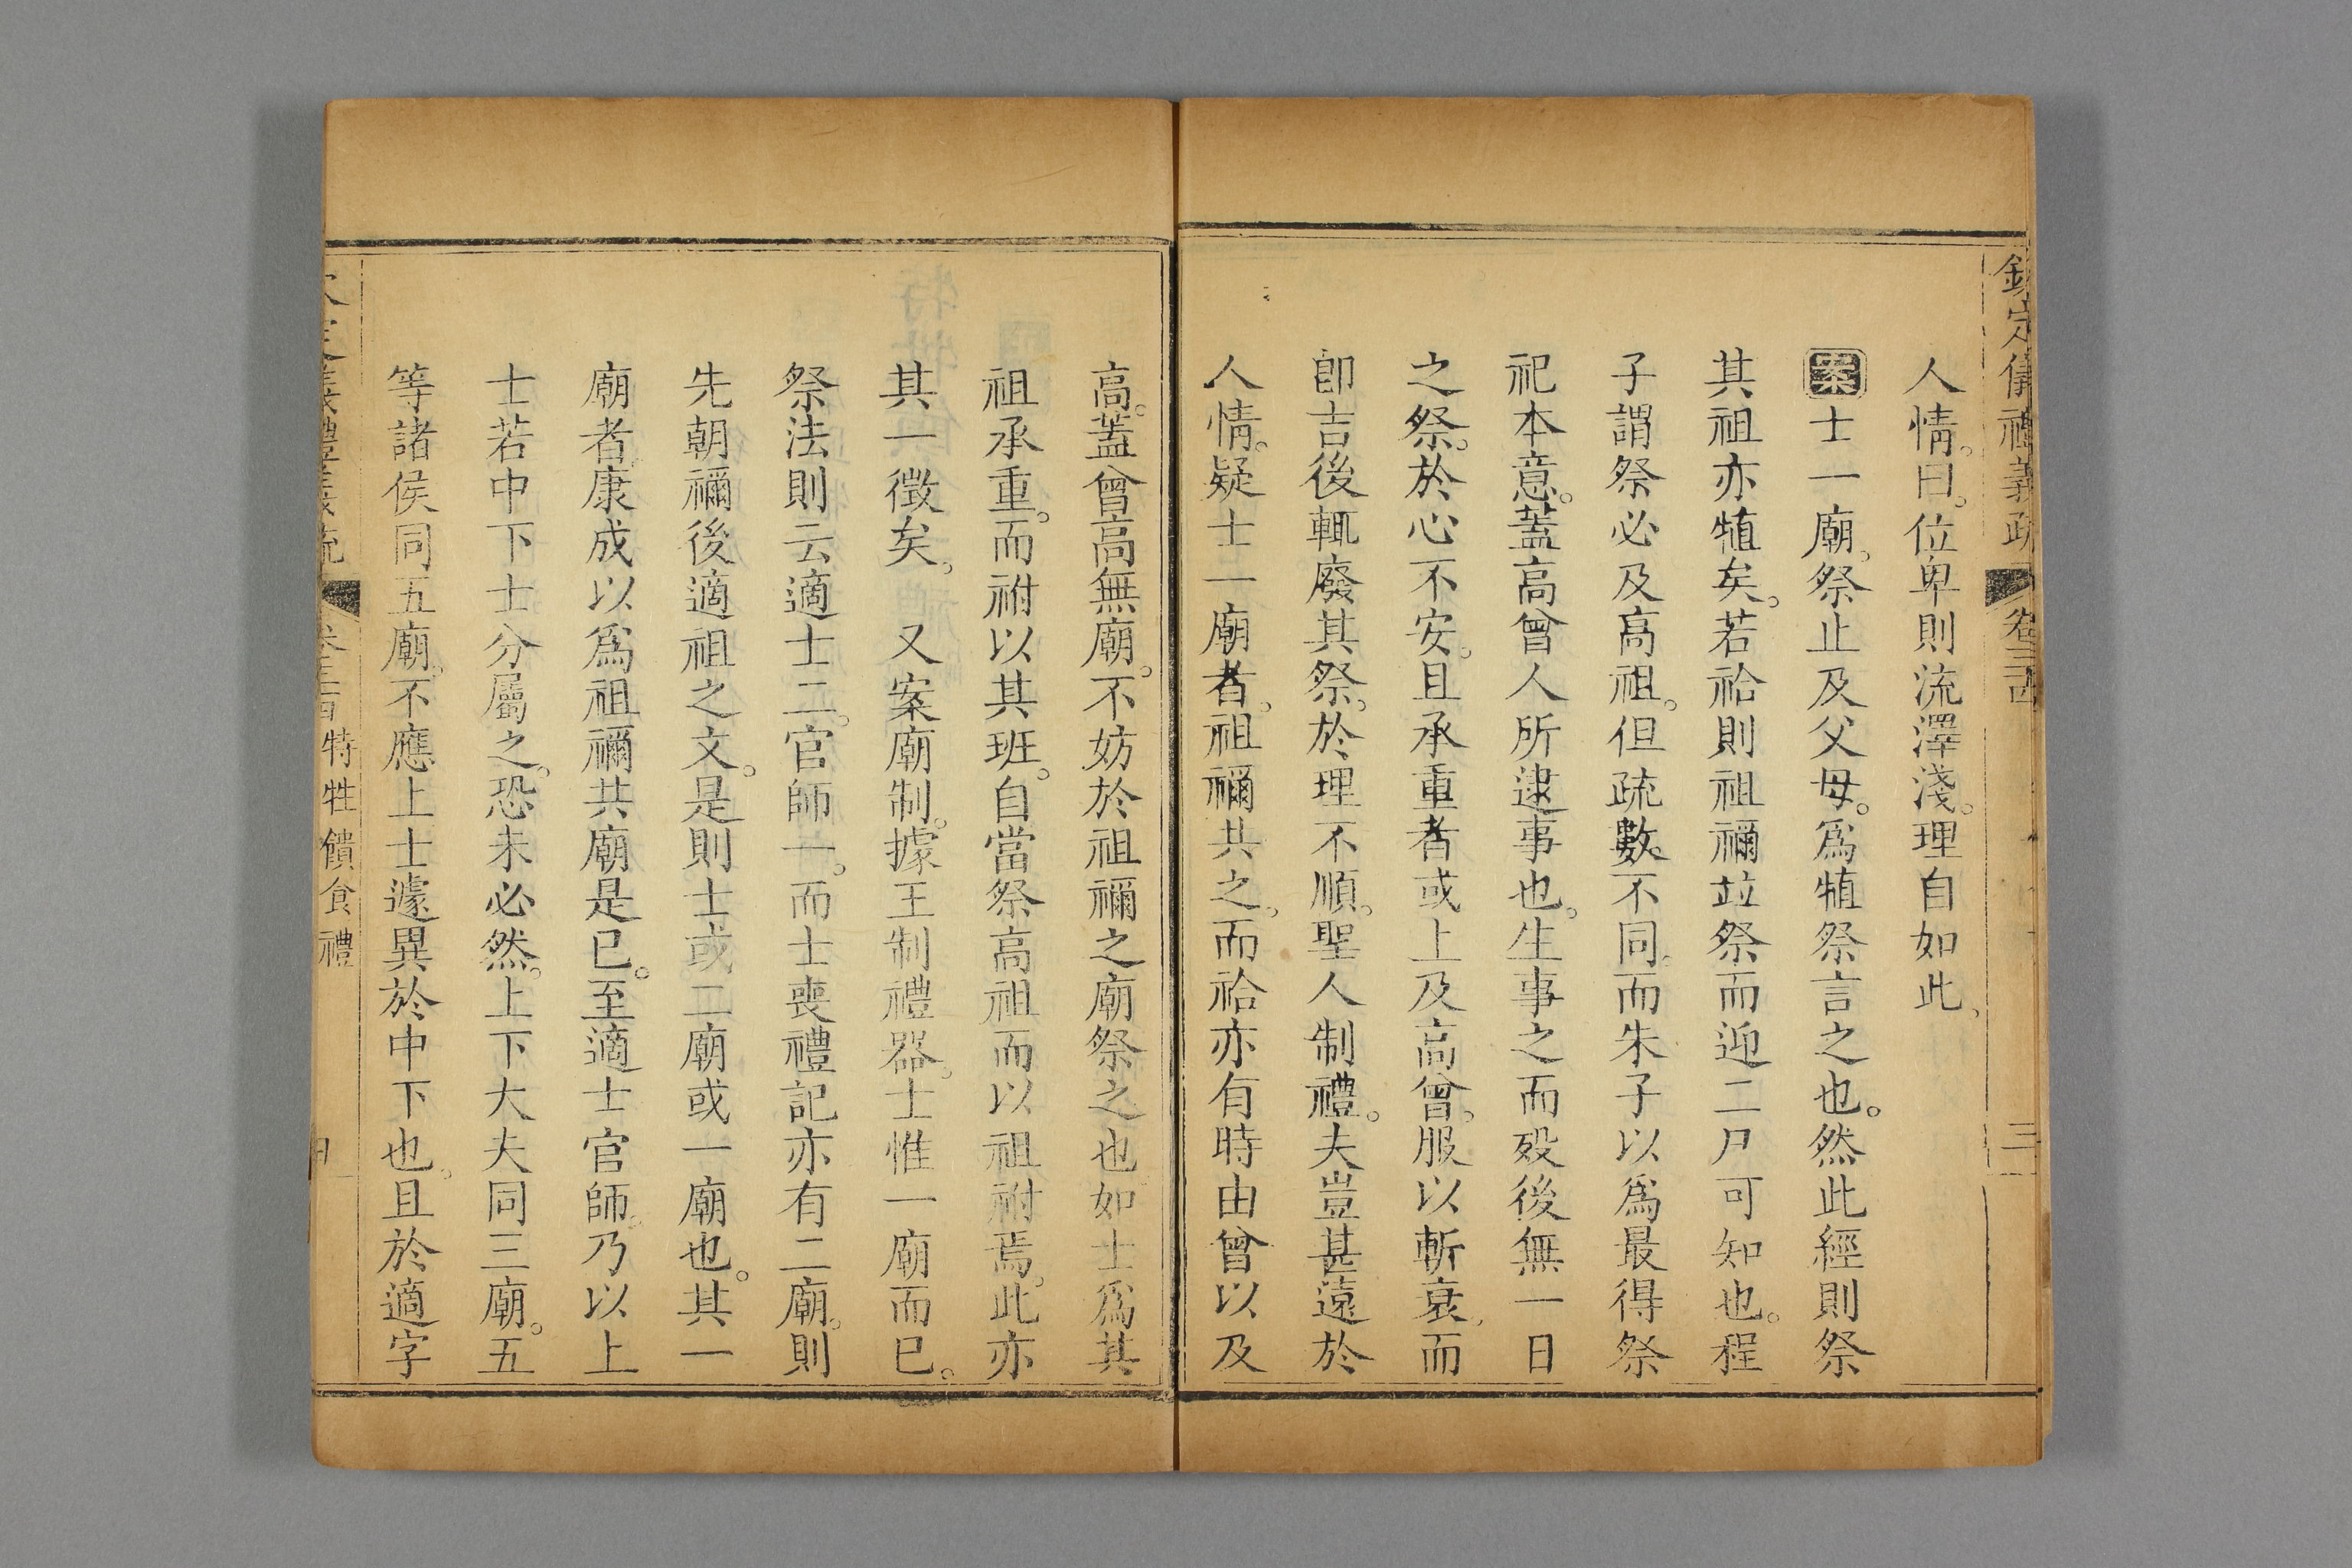 欽定儀禮義疏 卷三十四 三
人情。曰。位卑則流澤淺。理自如此。
案士一廟。祭止及父母。爲犆祭言之也。然此經則祭
其祖亦犆矣。若祫則祖禰竝祭而迎二尸可知也。程
子謂祭必及高祖。但疏數不同。而朱子以爲最得祭
祀本意。蓋高曾人所逮事也。生事之而歿後無一日
之祭。於心不安。且承重者或上及高曾。服以斬衰。而
卽吉後輒廢其祭。於理不順。聖人制禮。夫豈甚遠於
人情。疑士一廟者。祖禰共之。而祫亦有時由曾以及
高。蓋曾高無廟。不妨於祖禰之廟祭之也。如士爲其
祖承重。而祔以其班。自當祭高祖而以祖祔焉。此亦
其一徵矣。 又案廟制。據王制禮器。士惟一廟而已。
祭法則云適士二。官師一。而士喪禮記亦有二廟。則
先朝禰後適祖之文。是則士或二廟或一廟也。其一
廟者。康成以爲祖禰共廟是已。至適士官師。乃以上
士若中下士分屬之。恐未必然。上下大夫同三廟。五
等諸侯同五廟。不應上士遽異於中下也。且於適字
特牲饋食禮